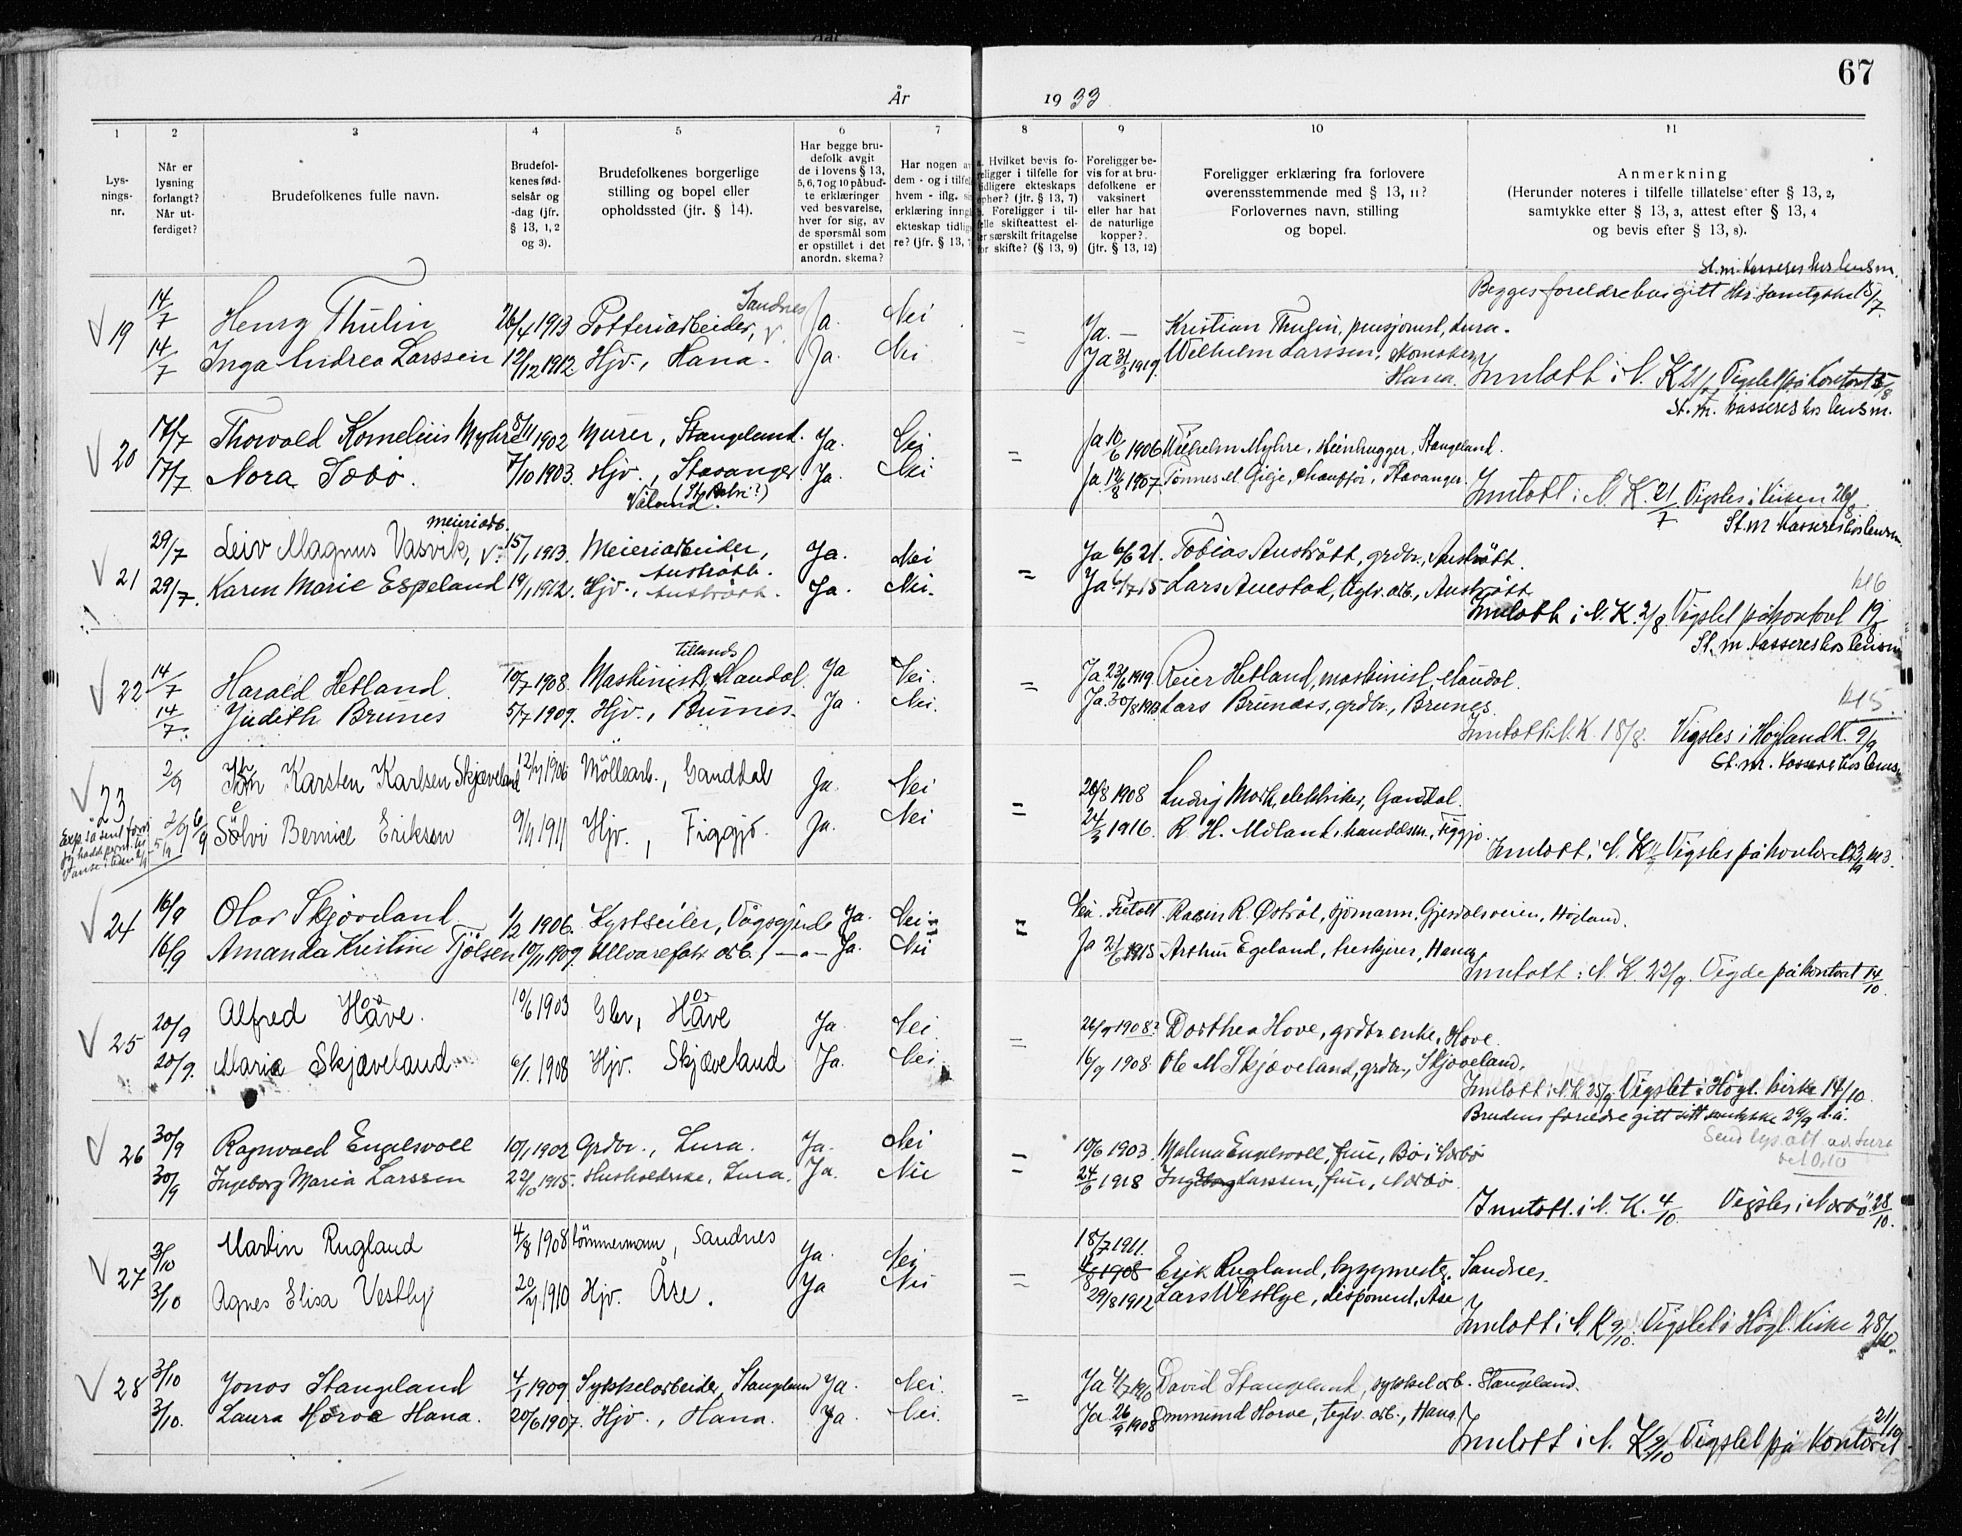 67
År 1933
1 2 3 4 5 6 7 8 9 10 11
Lys-
nings-
nr.
Når er
lysning
forlangt?
Når ut-
ferdiget?
Brudefolkenes fulle navn.
Brudefol-
kenes fød-
selsår og
-dag (jfr.
§ 13, 1, 2
og 3).
Brudefolkenes borgerlige
stilling og bopel eller
opholdssted (jfr. § 14).
Har begge bru-
defolk avgit
de i lovens § 13,
5, 6, 7 og 10 påbud-
te erklæringer
ved besvarelse,
hver for sig, av
de spørsmål som
er opstillet i det
anordn. skema?
Har nogen a
dem - og i tilfel
hvem - iflg. s
erklæring inng
ekteskap tidlig
re? (jfr. § 13,
Hvilket bevis fo-
religger i tilfelle for
tidligere ekteskaps
ophør? (jfr. § 13, 7)
Foreligger i til-
felle skifteattest el-
er særskilt fritagelse
for skifte? (§ 13, 9)
Foreligger be-
vis for at bru-
defolkene er
vaksinert
eller har hat
de naturlige
kopper?
(jfr. § 13, 12)
Foreligger erklæring fra forlovere
overensstemmende med § 13, 11?
Forlovernes navn, stilling
og bopel.
Anmerkning
(Herunder noteres i tilfelle tillatelse efter § 13, 2,
samtykke efter § 13, 3, attest efter § 13, 4
og bevis efter § 13, 8).
St. m. kasseres hos lensm.
Begges foreldre har gitt sitt samtykke 15/7
19 14/7 Henry Thulin 26/4 1913 Potteriarbeider, Sandnes Ja. Nei Ja. — Kristian Thulin, pensjonist, Lura.
14/7 Inga Andrea Larssen 12/12 1912 Hjv., Hana. Ja. Nei Ja 1919. Wilhelm Larssen, Hana.
Innlott i N. K. 21/7 Vigslet på kontoret 5/8
St. m. kasseres hos lensm.
20 17/7 Thorvald Kornelius Myhre 8/11 1902 Murer, Stangeland. Ja. Nei Ja 10/6 1906 Wilhelm Myhre, steinhugger, Stangeland.
17/7 Nora Søbø. 7/10 1903. Hjv., Stavanger. Ja. Nei Ja 1907. Tønnes M Gilje, chauffør, Stavanger
(St. Petri?)
Våland.
Innlott i N. K. 21/7 Vigsles i kirken 26/8
St. m kasseres hos lensm.
meieriarb.
21 29/7 Leiv Magnus Vasvik, 15/1 1913. Meieriarbeider, Austrått. Ja. Nei Ja 6/6 21. Tobias Austrått, grdbr., Austrått.
29/7. Karen Marie Espeland 19/1 1912. Hjv., Austrått. Ja. Nei. Ja 6/7 15 Lars Auestad, teglv. arb., Austrått
kl 6
Innlott i N. K. 2/8. Vigslet på kontoret 19/8
St. m. kasseres hos lensm
22 14/7 Harald Hetland. 10/7 1908. Maskinist, Maudal. Ja Nei. Ja 23/6 1919 Reier Hetland, maskinist, Maudal.
14/7. Judith Brunes 5/7 1909. Hjv., Brunes. Ja. Nei. Ja 30/8 Lars Brunes, grdbr., Brunes.
kl 5.
Innlott i N. K. 18/8. Vigsles i Høyland K. 9/9
St. m. kasseres hos lensm
23 2/9 Karsten Karlsen Skjæveland 1906 Möllearb., Ganddal Ja. Nei 20/8 1908 Ludvig Mork, elektriker, Gandal.
6/9 Sölvi Bernice Eriksen 9/11 1911 Hjv., Figgjo. Ja. Nei 24/3 1916. R. H. Midland, handelsm., Figgjo.
Innlott i N. K. Vigsles på kontoret kl 3.
24 16/9 Olav Skjæveland 1/2 1906. Kystseiler, Vågsgjerde Ja. Nei Nei. Fritatt. Rasin R. Østråt, sjømann, Gjesdalsveien, Høyland.
16/9 Amanda Kristine Tjölsen 10/11 1909. Ullvarefabr. arb., —"— Ja. Nei Ja 1915 Arthur Egeland, treskjærer, Hana
Innlott i N. K. 22/9. Vigde på kontoret 14/10.
25 20/9 Alfred Håve. 10/6 1903 Gbr., Håve Ja. Nei 26/9 1908? Dorthea Hove, grdbr. enke, Hove.
20/9. Marie Skjæveland 6/1. 1908 Hjv. Skjæveland Ja. Nei 16/9 1908. Ole M Skjæveland, grdbr., Skjæveland.
Innlott i N. K. 25/9. Vigslet i Högl. kirke 14/10.
Brudens foreldre gitt sitt samtykke 29/9 d.å.
26 30/9 Ragnvald Engelsvoll 10/1 1902 Grdbr., Lura. Ja. Nei 10/6 1903. Malena Engelsvoll, frue, Bø i Nærbø
30/9 Ingeborg Maria Larssen 22/10 1915. Husholderske, Lura. Ja. Nei 24/6 1918 Larssen, frue, Nærbø.
Innlott i N. K. 4/10. Vigsles i Nærbø 28/10.
27 3/10 Martin Rugland 4/8 1908 tömmermann, Sandnes Ja. Nei 18/7 1911. 1908 Erik Rugland, byggmester, Sandnes.
3/10 Agnes Elisa Vestly 1910 Hjv. Åse. Ja Nei 29/8 1912 Lars Westlye, disponent, Åse
Innlott i N. K. 9/10. Vigslet i Högl. Kirke 28/10.
28 3/10 Jonas Stangeland 4/1 1909 Sykkelarbeider, Stangeland Ja. Nei. Ja David Stangeland, sykkelarb. Stangeland.
3/10. Laura Horve Hana. 20/6 1907. Hjv., Hana. Ja. Nei. Ja. 26/9 1908 Ommund Horve, teglv. arb., Hana
Innlott i N. K. 9/10 Vigslet på kontoret 21/10